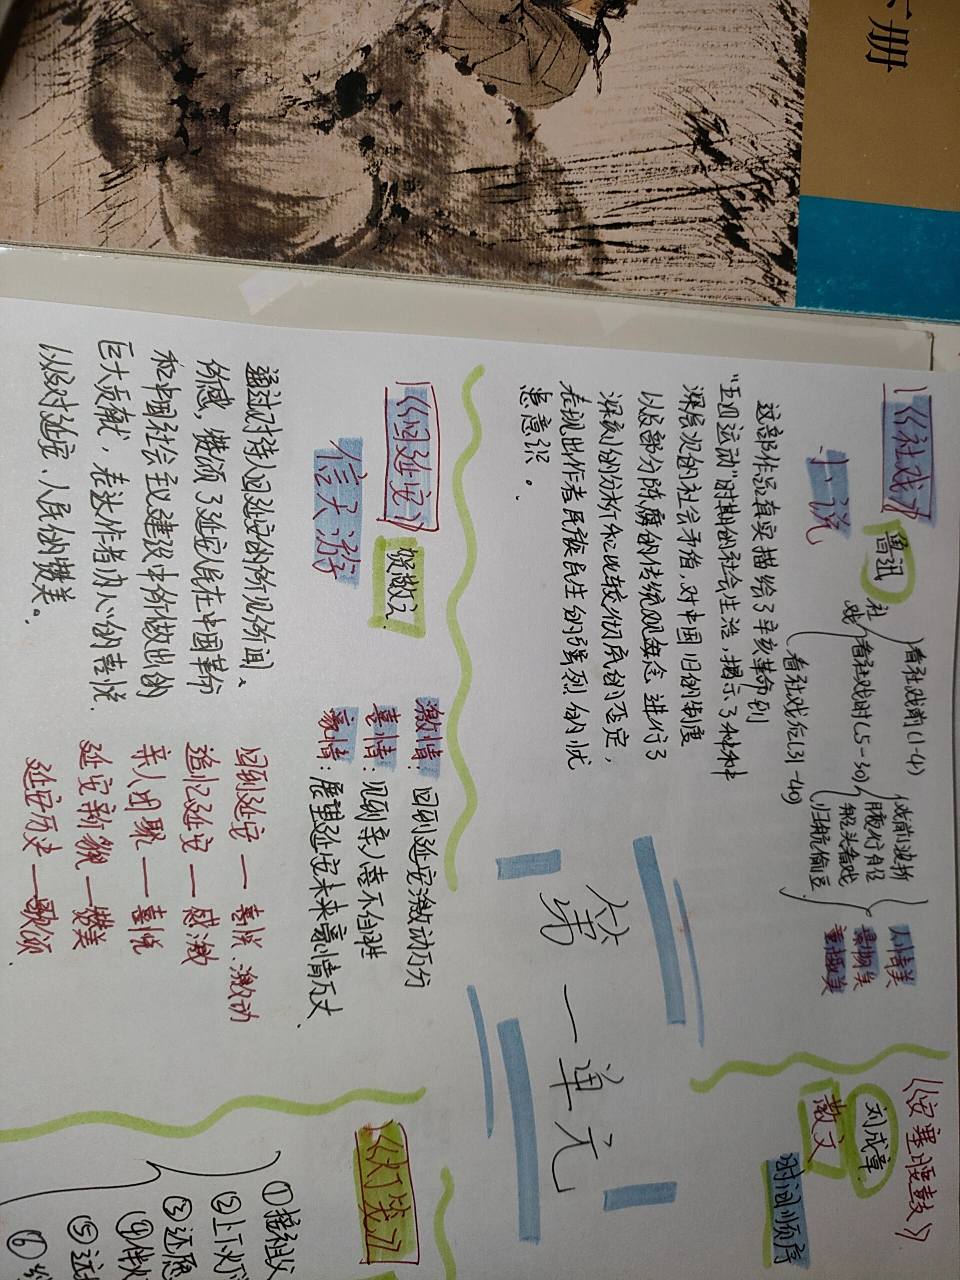 下册
《社戏》
鲁迅
小说
社戏
看社戏前(1-4)
看社戏时(5-30)
看社戏后(31-40)
戏前波折
月夜行船
船头看戏
归航偷豆
人情美
景物美
童趣美
这部作品真实描绘了辛亥革命到
"五四运动"时期的社会生活,揭示了种种
深层次的社会矛盾,对中国旧的制度
以及部分陈腐的传统观念进行了
深刻的分析和比较彻底的否定,
表现出作者民族民生的强烈的忧
患意识。
第一单元
《回延安》
贺敬之
信天游
通过对诗人回延安的所见所闻、
所感,赞颂了延安人民在中国革命
和中国社会主义建设中所做出的
巨大贡献,表达作者内心的喜悦,
以及对延安、人民的赞美。
激情:回到延安激动万分
喜情:见到亲人喜不自胜
豪情:展望延安未来豪情万丈
回到延安——喜悦、激动
追忆延安——感激
亲人团聚——喜悦
延安新貌——赞美
延安历史——歌颂
《安塞腰鼓》
刘成章
散文
时间顺序
《灯笼》
①接祖父
②上下灯
③还愿
④伴
⑤
⑥